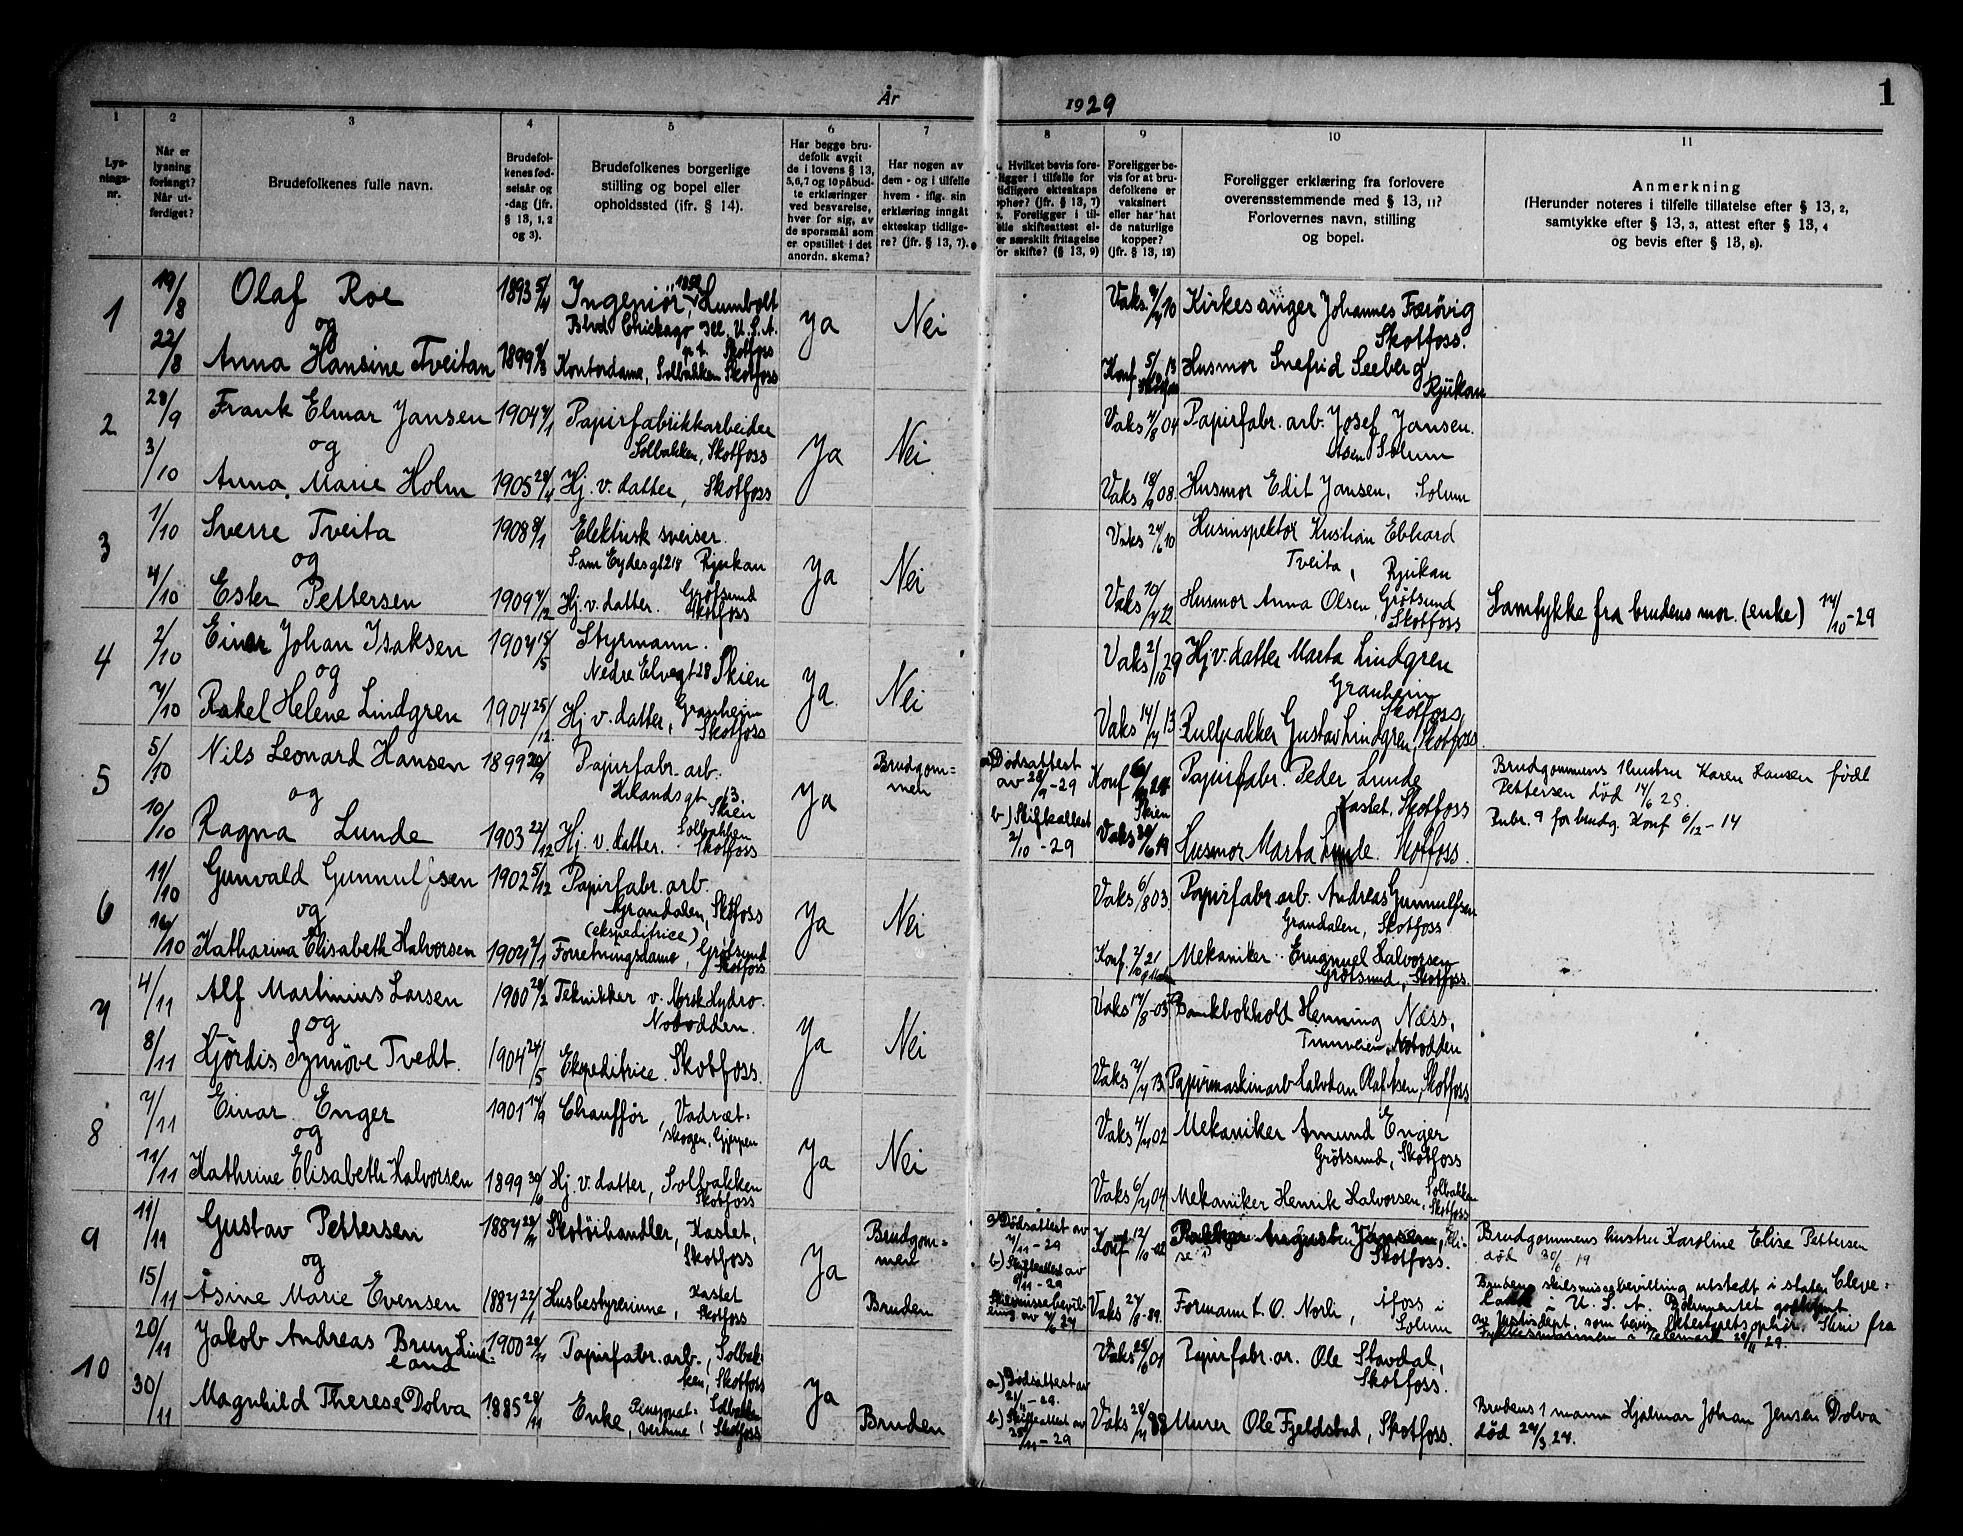 År 1929
1
1
2
3
4
5
6
7
8
9
10
11
Lys-
nings-
nr.
Når er
lysning
forlangt?
Når ut-
ferdiget?
Brudefolkenes fulle navn.
Brudefol-
kenes fød-
selsår og
-dag (jfr.
§ 13, 1, 2
og 3).
Brudefolkenes borgerlige
stilling og bopel eller
opholdssted (ifr. § 14).
Har begge bru-
defolk avgit
de i lovens § 13,
5,6,7 og 10 påbud-
te erklæringer
ved besvarelse,
hver for sig, av
de spørsmål som
er opstillet i det
anordn. skema?
Har nogen av
dem - og i tilfelle
hvem - iflg. sin
erklæring inngått
ekteskap tidlige-
re? (jfr. § 13, 7).
Hvilket bevis fore-
ligger i tilfelle for
tidligere ekteskaps
opher? (jfr. § 13, 7)
Foreligger i til-
elle skifteattest el-
er særskilt fritagelse
or skifte? (§ 13, 9)
Foreligger be-
vis for at bru-
defolkene er
vaksinert
eller har hat
de naturlige
kopper?
(jfr. § 13, 12)
Foreligger erklæring fra forlovere
overensstemmende med § 13, 11?
Forlovernes navn, stilling
og bopel.
Anmerkning
(Herunder noteres i tilfelle tillatelse efter § 13, 2,
samtykke efter § 13, 3, attest efter § 13, 4
og bevis efter § 13, 8).
1
19/8
Olaf Roe
1893 5/4
Ingeniør, 1850 Humbolt
Blvd. Chickago Ill. U.S.A.
p.t. Skotfoss
og
22/8
Anna Hansine Tveitan
1899
Kontordame, Solbakken Skotfoss
Ja
Nei
Vaks
Kirkesanger Johannes Færøvig
Skotfoss.
Konf 5/1 13
Husmor Snefrid Seeberg,
Rjukan
2
28/9
Frank Elmar Jansen
1904 7/1
Papirfabrikkarbeider
Solbakken, Skotfoss
og
3/10
Anna Marie Holm
1905
Hj. v. datter, Skotfoss
Ja
Nei.
Vaks 7/8 04
Papirfabr. arb. Josef Jansen.
Åsen Solum
Vaks 18/9 08.
Husmor Edit Jansen, Solum
3
1/10
Sverre Tveita
1908 8/1
Elektrisk sveiser.
Sam Eydesgt 218 Rjukan
og
4/10
Ester Pettersen
1909 7/12
Hj. v. datter. Grøtsund
Skotfoss
Ja
Nei
Vaks 24/6 10
Husinspektør Kristian Ebhard
Tveita, Rjukan
Vaks 10/7 22
Husmor Anna Olsen, Grøtsund
Skotfoss
Samtykke fra brudens mor. (enke) 14/10-29
4
2/10
Einar Johan Isaksen
1904 15/5
Styrmann.
Nedre Elvegt 28 Skien
og
7/10
Rakel Helene Lindgren
1904 25/12.
Hj. v. datter, Granheim
Skotfoss
Ja.
Nei
Vaks 2/10 29
Hj v. datter Marta Lindgren
Granheim
Skotfoss
Vaks 14/7 13
Rullpakker Gustav Lindgren, Skotfoss
5
5/10
Nils Leonard Hansen
1899 20/9
Papirfabr. arb.
13.
Skien
og
10/10
Ragna Lunde
1903 22/12
Hj. v. datter. Solbakken
Skotfoss
Ja
Brudgom=
men
a) Dødsattest
av 28/9 - 29
b) Skifteattest
2/10 - 29
Konf
Skien
Vaks
Papirfabr. Peder Lunde
Kastet, Skotfoss
Husmor Marta Lunde. Skotfoss.
Brudgommens 1 hustru Karen Hansen født
Pettersen død 14/6 25.
Rubr. 9 for brudg. Konf 6/12 - 14
6
11/10
Gunvald Gunnulfsen
1902 5/12
Papirfabr. arb.
Grandalen, Skotfoss
og
16/10
Katharina Elisabeth Halvorsen
1904 2/1
(ekspeditrice)
Forretningsdame, Grøtsund
Skotfoss
Ja
Nei
Vaks 6/8 03.
Papirfabr arb. Andreas Gunnulfsen
Grandalen, Skotfoss
Konf. 2/10 21
Mekaniker Emanuel Halvorsen
Grøtsund, Skotfoss.
7
4/11
Alf Martinius Larsen
1900 28/2
Teknikker v. Norsk Hydro.
Notodden.
og
8/11
Hjørdis Synnøve Tvedt.
1904 24/5
Ekspeditrice. Skotfoss.
Ja
Nei
Vaks 17/8 - 03
Bankbokhold Henning Næss,
Tinnveien, Notodden
Vaks 7/7 13
Papirmaskinarb Halvdan Olaf Åsen, Skotfoss
8
7/11
Einar Enger
1901 14/9
Chauffør, Vadræt-
skogen, Gjerpen
og
11/11
Kathrine Elisabeth Halvorsen
1899 30/6
Hj. v. datter, Solbakken
Skotfoss
Ja
Nei
Vaks 7/7 02
Mekaniker Amund Enger
Grøtsund, Skotfoss
Vaks 6/7 04
Mekaniker Henrik Halvorsen, Solbakken
Skotfoss
9
11/11
Gustav Pettersen
1887 29/11
Skotøihandler, Kastet,
Skotfoss
og
15/11
Åsine Marie Evensen
1887 22/1
Husbestyrerinne, Kastet
Skotfoss
Ja
Brudgom=
men
Bruden
a) Dødsattest av
7/11 - 29
b) Skifteattest av
9/11 - 29
Skilsmissebevil-
ling av 7/6 27
Konf
Skotfoss.
Vaks 27/8 - 89.
Formann L. O. Norli, Åfoss i
Solum
Brudgommens hustru Karoline Elise Pettersen
død 30/6 19
Brudens skilsmissebevilling utstedt i staten Cleve-
land i U. S. A. Dokumentet godkjent
av Justisdept. som bevis Skriv fra
Fylkesmannen i Telemark 29/11 29.
10
20/11
Jakob Andreas Brun Lind-
land
1900 28/11
Papirfabr. arb., Solbak-
ken, Skotfoss
30/11
Magnhild Therese Dolva
1885 28/11
Enke, Pensjonat-
vertinne, Solbakken
Skotfoss
Ja
Bruden
a) Dødsattest av
21/11 - 29.
b) Skifteattest av
25/11 - 29
Vaks 25/6 01
Papirfabr. ar. Ole Stavdal,
Skotfoss.
Vaks 28/11 88
Murer Ole Fjeldstad, Skotfoss.
Brudens 1 mann Hjalmar Johan Jensen Dolva
død 24/3 24.